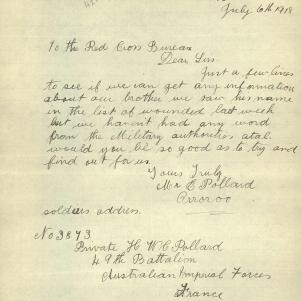 July 6th 1918
To the Red Cross Bureau
Dear Sirs
Just a few lines
to see if we can get any information
about our brother we saw his name
in the list of wounded last week
but we havent had any word
from the Military authorities atal.
would you be so good as to try and
find out for us.
Yours Truly
E Pollard
Orroroo
soldiers address.
No 3873
Private H. W. C Pollard
49th Battalion
Australian Imperial Forces
France